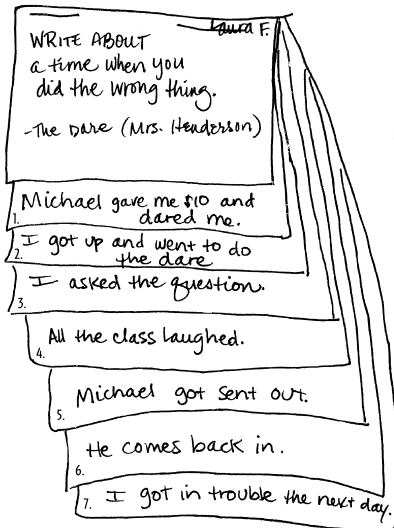 Laura F.
WRITE ABOUT
a time when you
did the wrong thing.
-The Dare (Mrs. Henderson)
Michael gave me $10 and
1. dared me.
I got up and went to do
2. the dare
I asked the question.
3.
All the class laughed.
4.
Michael got sent out.
5.
He comes back in.
6.
7. I got in trouble the next day.